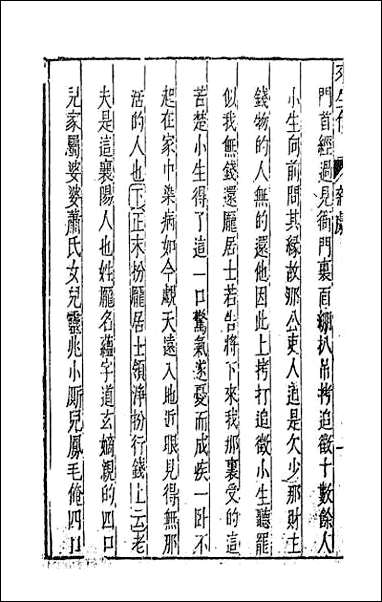 來生債 雜劇 一
門首經過見衙門裏面綳扒吊拷追徵十數餘人
小生向前問其緣故那公吏人道是欠少那財主
錢物的人無的還他因此上拷打追徵小生聽罷
似我無錢還龐居士若告將下來我那裏受的這
苦楚小生得了這一口驚氣遂憂而成疾一卧不
起在家中染病如今覷天遠入地近眼見得無那
活的人也下正末扮龐居士領淨扮行錢上云老
夫是這襄陽人也姓龐名蘊字道玄嫡親的四口
兒家屬婆婆蕭氏女兒靈兆小厮兒鳳毛俺四口